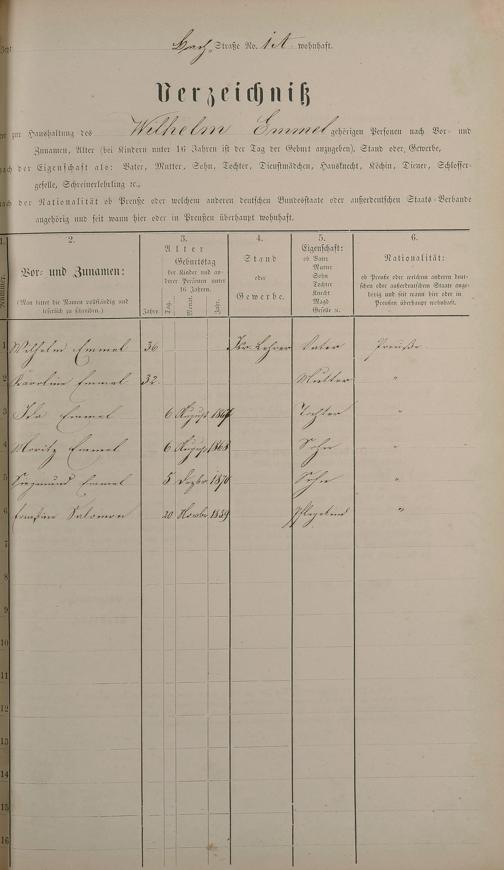 Bach Straße No. 1A wohnhaft.
Verzeichniß
zur Haushaltung des Wilhelm Emmel gehörigen Personen nach Vor- und
Zunamen, Alter (bei Kindern unter 16 Jahren ist der Tag der Geburt anzugeben), Stand oder Gewerbe,
nach der Eigenschaft als: Vater, Mutter, Sohn, Tochter, Dienstmädchen, Hausknecht, Köchin, Diener, Schlosser-
geselle, Schreinerlehrling ꝛc.,
nach der Nationalität ob Preuße oder welchem anderen deutschen Bundesstaate oder außerdeutschen Staats-Verbande
angehörig und seit wann hier oder in Preußen überhaupt wohnhaft.
1. 2. 3. 4. 5. 6.
Nummer.
Vor- und Zunamen:
(Man bittet die Namen vollständig und
leserlich zu schreiben.)
Alter
Geburtstag
der Kinder und an-
derer Personen unter
16 Jahren.
Jahre Tag. Monat. Jahr.
Stand
oder
Gewerbe.
Eigenschaft:
ob Vater
Mutter
Sohn
Tochter
Knecht
Magd
Geselle ꝛc.
Nationalität:
ob Preuße oder welchem anderen deut-
schen oder außerdeutschen Staate ange-
hörig und seit wann hier oder in
Preußen überhaupt wohnhaft.
1 Wilhelm Emmel 36 Isr. Lehrer Vater Preuße
2 Karoline Emmel 32 Mutter "
3 Ida Emmel 6 August Tochter "
4 Moritz Emmel 6 August 1868 Sohn "
5 Siegmund Emmel 5 Dezbr 1870 Sohn "
6 Salomon 20 Novbr 1859 "
7
8
9
10
11
12
13
14
15
16